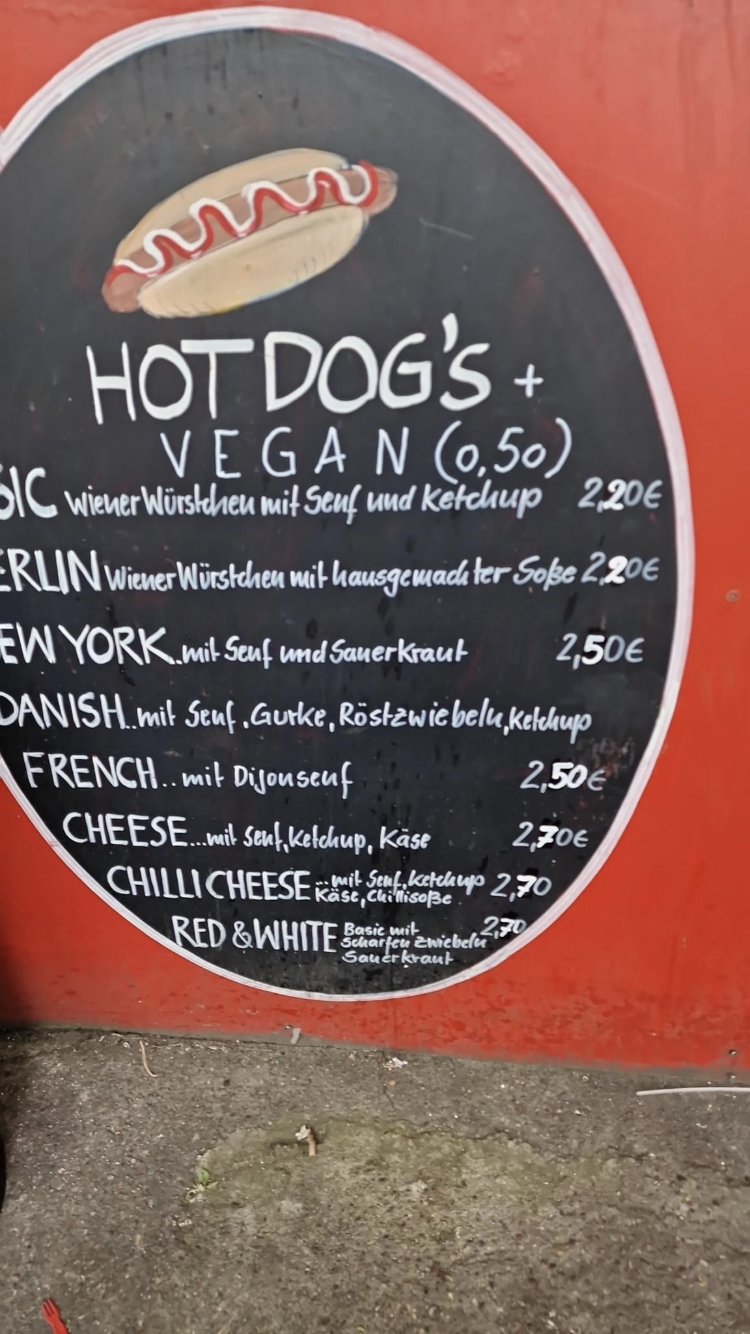 HOT DOG'S +
VEGAN (0,50)
SIC Wiener Würstchen mit Senf und Ketchup 2,20€
ERLIN Wiener Würstchen mit hausgemachter Soße 2,20€
EW YORK..mit Senf und Sauerkraut 2,50€
DANISH..mit Senf, Gurke, Röstzwiebeln, Ketchup
FRENCH..mit Dijonsenf 2,50€
CHEESE...mit Senf, Ketchup, Käse 2,70€
CHILLI CHEESE ...mit Senf, Ketchup 2,70
Käse, Chillisoße
RED & WHITE Basic mit 2,70
scharfen Zwiebeln
Sauerkraut